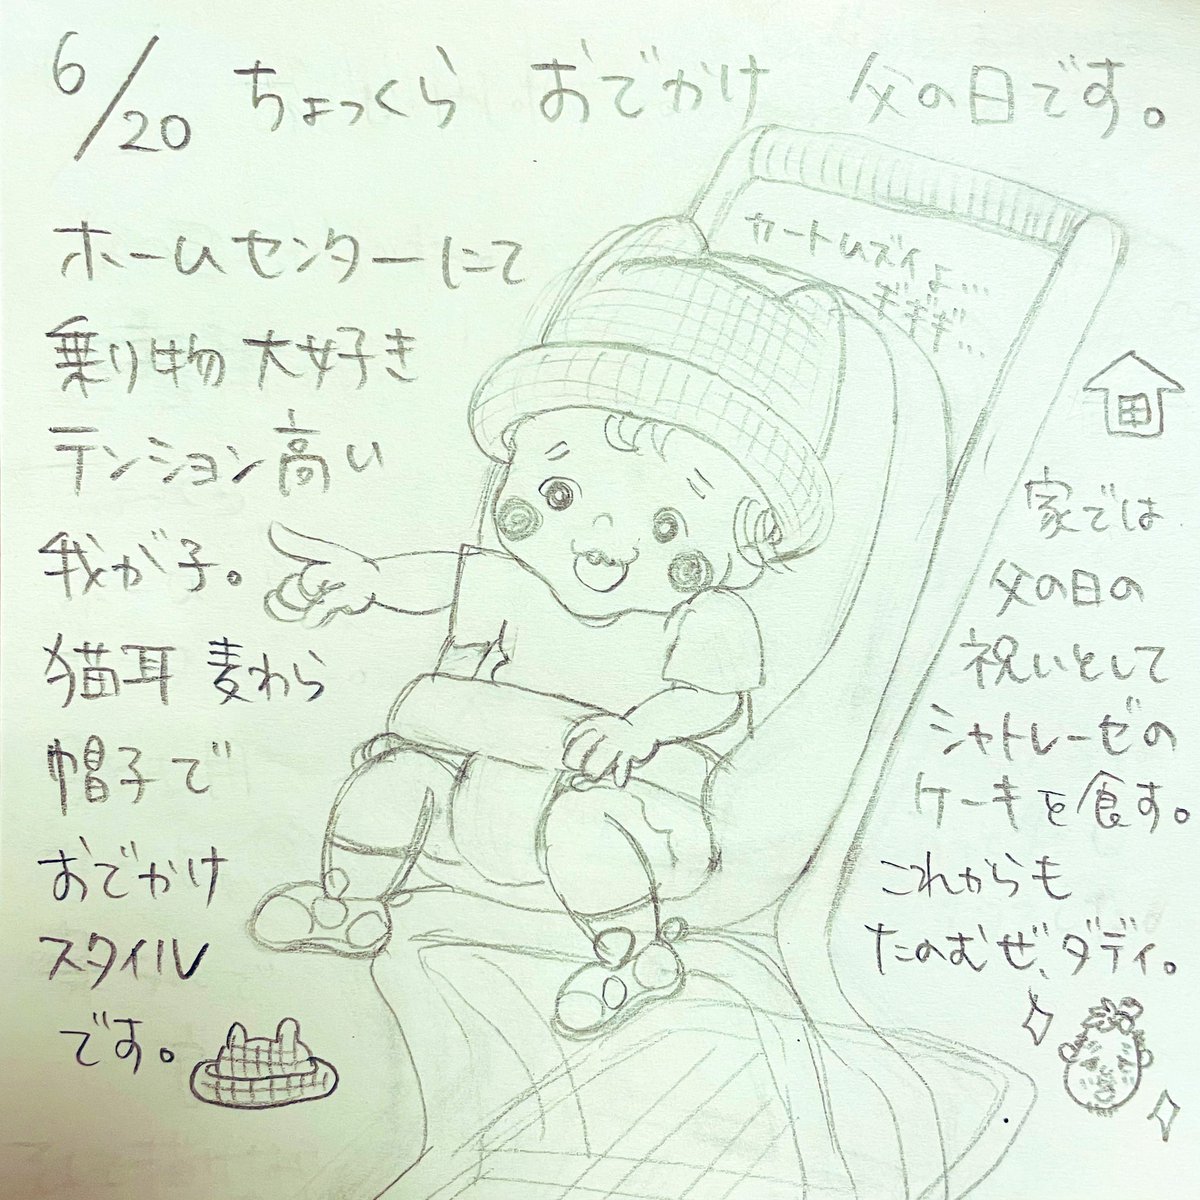 6/20 ちょっくら おでかけ 父の日です。
ホームセンターにて
乗り物大好き
テンション高い
我が子。
猫耳 麦わら
帽子で
おでかけ
スタイル
です。
カートムズイよ…
ギギギ…
家では
父の日の
祝いとして
シャトレーゼの
ケーキを食す。
これからも
たのむぜ、ダディ。